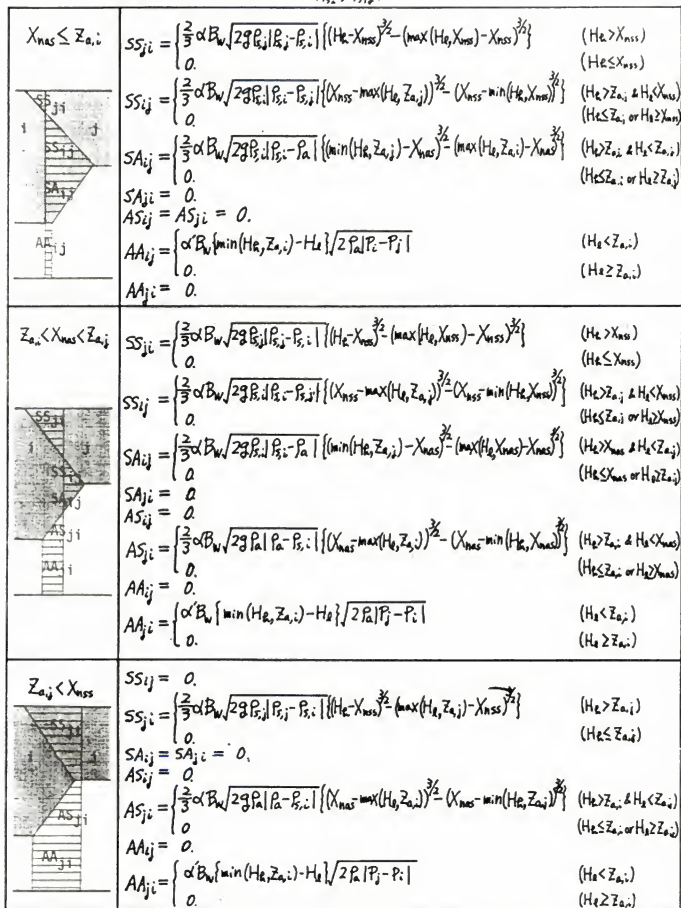 X_nas ≤ Z_a,i
SS_ji = { 2/3 αB_w √2gρ_s,j|ρ_s,j-ρ_s,i| {(H_R-X_nss)^3/2 - (max(H_ℓ,X_nss)-X_nss)^3/2} (H_R>X_nss)
0. (H_R≤X_nss)
SS_ij = { 2/3 αB_w √2gρ_s,i|ρ_s,i-ρ_s,j| {(X_nss-max(H_ℓ,Z_a,j))^3/2 - (X_nss-min(H_R,X_nss))^3/2} (H_R>Z_a,j & H_ℓ<X_nss)
0. (H_R≤Z_a,j or H_ℓ≥X_nss)
SA_ij = { 2/3 αB_w √2gρ_s,i|ρ_s,i-ρ_a| {(min(H_R,Z_a,j)-X_nas)^3/2 - (max(H_ℓ,Z_a,i)-X_nas)^3/2} (H_R>Z_a,i & H_ℓ<Z_a,j)
0. (H_R≤Z_a,i or H_ℓ≥Z_a,j)
SA_ji = 0.
AS_ij = AS_ji = 0.
AA_ij = { α'B_w{min(H_R,Z_a,i)-H_ℓ}√2ρ_a|P_i-P_j| (H_ℓ<Z_a,i)
0. (H_ℓ≥Z_a,i)
AA_ji = 0.
SS_ji
i
j
SS_ij
SA_ij
AA_ij
Z_a,i<X_nas<Z_a,j
SS_ji = { 2/3 αB_w √2gρ_s,j|ρ_s,j-ρ_s,i| {(H_R-X_nss)^3/2 - (max(H_ℓ,X_nss)-X_nss)^3/2} (H_R>X_nss)
0 (H_R≤X_nss)
SS_ij = { 2/3 αB_w √2gρ_s,i|ρ_s,i-ρ_s,j| {(X_nss-max(H_ℓ,Z_a,j))^3/2 - (X_nss-min(H_R,X_nss))^3/2} (H_R>Z_a,j & H_ℓ<X_nss)
0. (H_R≤Z_a,j or H_ℓ≥X_nss)
SA_ij = { 2/3 αB_w √2gρ_s,i|ρ_s,i-ρ_a| {(min(H_R,Z_a,j)-X_nas)^3/2 - (max(H_ℓ,X_nas)-X_nas)^3/2} (H_R>X_nas & H_ℓ<Z_a,j)
0. (H_R≤X_nas or H_ℓ≥Z_a,j)
SA_ji = 0.
AS_ij = 0.
AS_ji = { 2/3 αB_w √2gρ_a|ρ_a-ρ_s,i| {(X_nas-max(H_ℓ,Z_a,i))^3/2 - (X_nas-min(H_R,X_nas))^3/2} (H_R>Z_a,i & H_ℓ<X_nas)
0. (H_R≤Z_a,i or H_ℓ≥X_nas)
AA_ij = 0.
AA_ji = { α'B_w{min(H_R,Z_a,i)-H_ℓ}√2ρ_a|P_j-P_i| (H_ℓ<Z_a,i)
0. (H_ℓ≥Z_a,i)
SS_ji
i
j
SS_ij
SA_ij
AS_ji
AA_ji
Z_a,j<X_nss
SS_ij = 0.
SS_ji = { 2/3 αB_w √2gρ_s,j|ρ_s,j-ρ_s,i| {(H_R-X_nss)^3/2 - (max(H_ℓ,Z_a,j)-X_nss)^3/2} (H_R>Z_a,j)
0. (H_R≤Z_a,j)
SA_ij = SA_ji = 0.
AS_ij = 0.
AS_ji = { 2/3 αB_w √2gρ_a|ρ_a-ρ_s,i| {(X_nas-max(H_ℓ,Z_a,i))^3/2 - (X_nas-min(H_R,Z_a,j))^3/2} (H_R>Z_a,i & H_ℓ<Z_a,j)
0 (H_R≤Z_a,i or H_ℓ≥Z_a,j)
AA_ij = 0.
AA_ji = { α'B_w{min(H_R,Z_a,i)-H_ℓ}√2ρ_a|P_j-P_i| (H_ℓ<Z_a,i)
0. (H_ℓ≥Z_a,i)
SS_ji
i
AS_ji
AA_ji